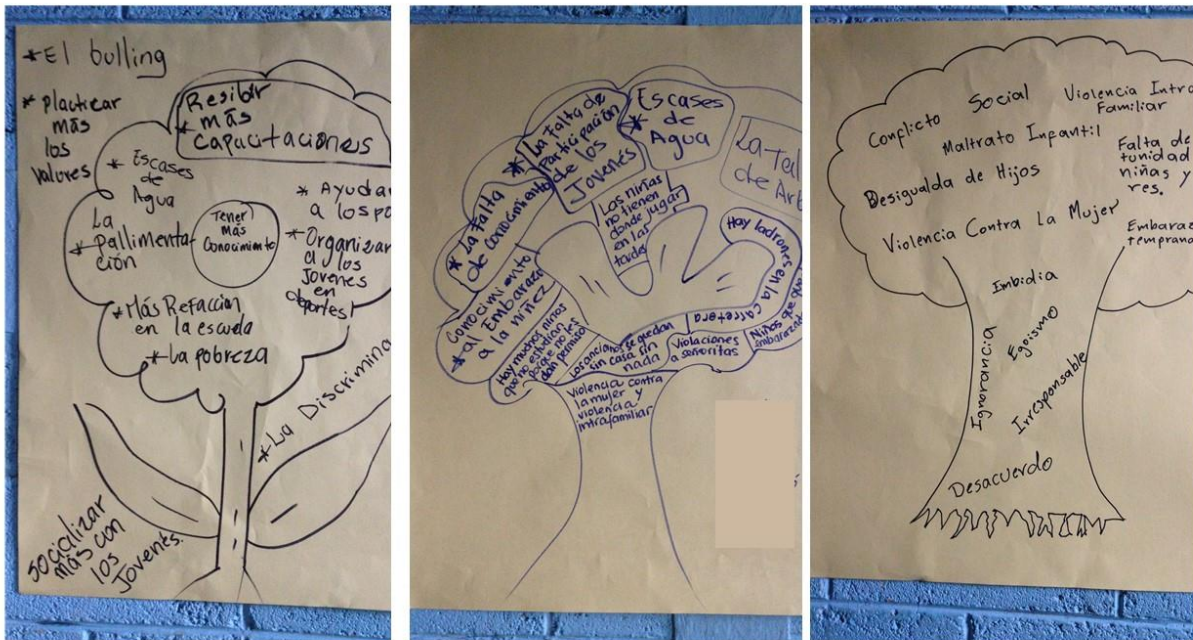 *El bulling
* placticar
más
los
valores
Resibir
más
* capacitaciones
* Escases
de
Agua
La
* pallimenta-
ción
Tener
más
conocimiento
* Ayudar
a los po
* Organizar
a los
Jovenes
en
deportes
*Más Refaccion
en la escuela
*La pobreza
*La Discrimina
socializar
más con
los
Jovenes.
* La Falta
de conocimiento
* La Falta de
Participación
de los
Jovenés
Escases
* de
Agua
La Tal
de Arb
Los niñas
no tienen
donde jugar
en las
tardes
Hay ladrones en la
carretera
Conocimiento
*al Embarazo
a la niñez
Hay muchos niños
que no estudian
porque no les
dan permiso
Los ancianos se quedan
sin casa sin
nada
Violaciones
a señoritas
Niñas que
embarazada
Violencia contra
la mujer y
violencia
intrafamiliar
Conflicto Social
Violencia Intra
Familiar
Maltrato Inpantil
Desigualda de Hijos
Falta de
tunidad
niñas y
res.
Violencia Contra La Mujer
Embaraz
temprano
Imbidia
Egoismo
Ignorancia
Irresponsable
Desacuerdo